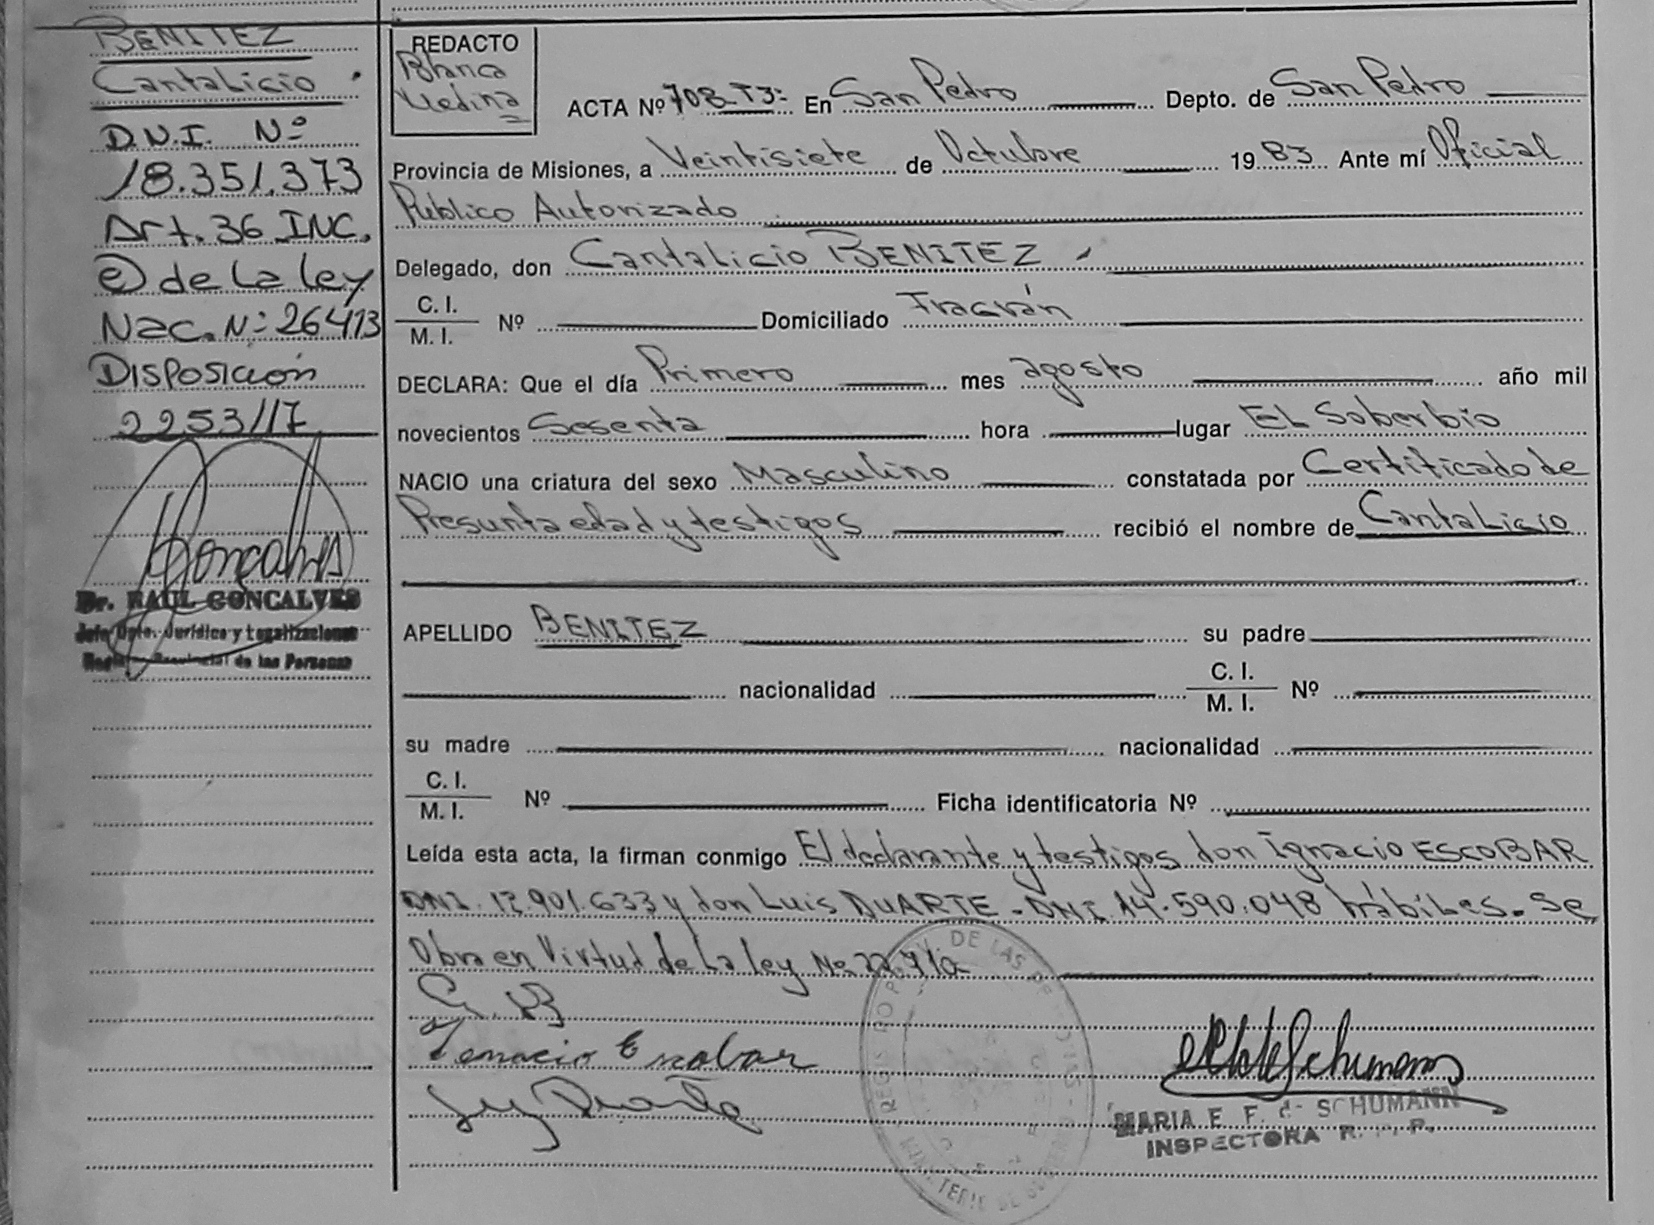 BENITEZ
Cantalicio
D.N.I. Nº
18.351.373
Art. 36 INC.
e) de La Ley
Nac. Nº 26413
Disposición
2253/17
Goncalves
Dr. RAUL GONCALVES
Jefe Dpto. Jurídico y Legalizaciones
Registro Provincial de las Personas
REDACTO
Blanca
Medina
ACTA Nº 708-T3= En San Pedro Depto. de San Pedro
Provincia de Misiones, a Veintisiete de Octubre 1983 Ante mí Oficial
Público Autorizado
Delegado, don Cantalicio BENITEZ
C. I.
M. I. Nº Domiciliado Fracrán
DECLARA: Que el día Primero mes agosto año mil
novecientos Sesenta hora lugar EL Soberbio
NACIO una criatura del sexo Masculino constatada por Certificado de
Presunta edad y testigos recibió el nombre de Cantalicio
APELLIDO BENITEZ su padre
nacionalidad C. I.
M. I. Nº
su madre nacionalidad
C. I.
M. I. Nº Ficha identificatoria Nº
Leída esta acta, la firman conmigo El declarante y testigos don Ignacio ESCOBAR
DNI. 17.901.633 y don Luis DUARTE - DNI 14.590.048 hábiles. Se
Obra en Virtud de La Ley Nº 22.710-
C. B
Ignacio Escobar
Duarte
MARIA E. F. de SCHUMANN
INSPECTORA R. P. P.
REGISTRO PROV. DE LAS PERSONAS
MINISTERIO DE GOBIERNO